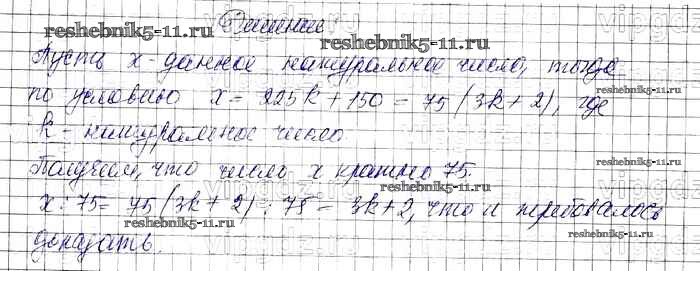 Решение
reshebnik5-11.ru
Пусть x - данное натуральное число, тогда
по условию x = 225k + 150 = 75(3k + 2), где
k - натуральное число.
Получаем, что число x кратно 75.
x : 75 = 75(3k + 2) : 75 = 3k + 2, что и требовалось
доказать.
reshebnik5-11.ru
reshebnik5-11.ru
reshebnik5-11.ru
reshebnik5-11.ru
reshebnik5-11.ru